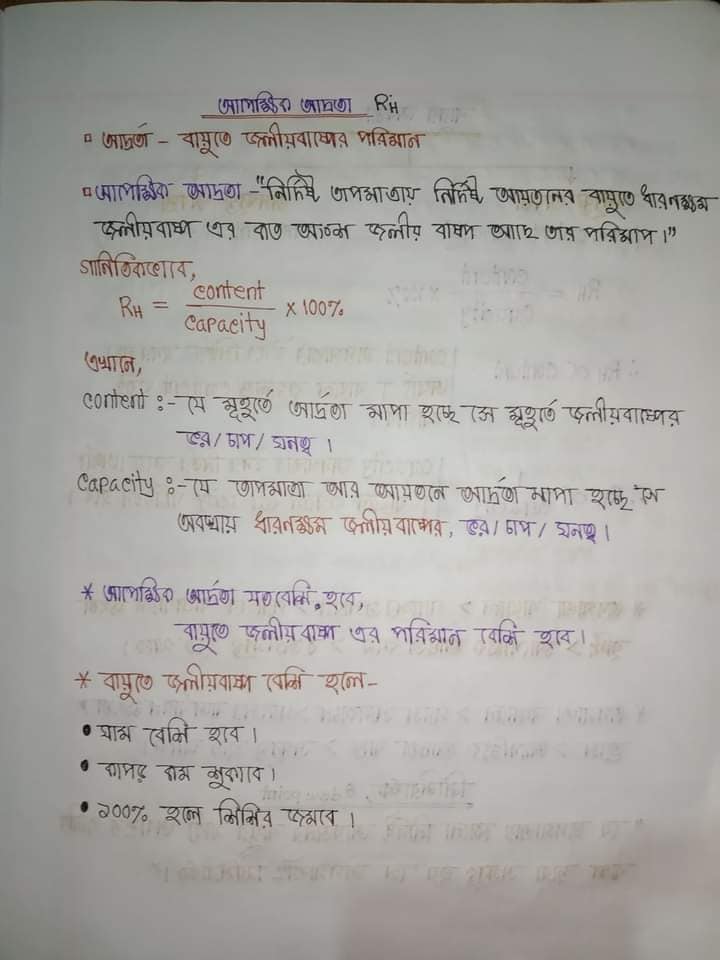 আপেক্ষিক আদ্রতা RH
▫ আদ্রতা - বায়ুতে জলীয়বাষ্পের পরিমান
▫ আপেক্ষিক আদ্রতা - "নির্দিষ্ট তাপমাত্রায় নির্দিষ্ট আয়তনের বায়ুতে ধারনক্ষম
জলীয়বাষ্প এর কত অংশ জলীয় বাষ্প আছে তার পরিমাপ।"
গানিতিকভাবে,
RH = content / capacity × 100%
এখানে,
content :- যে মুহূর্তে আর্দ্রতা মাপা হচ্ছে সে মুহূর্তে জলীয়বাষ্পের
ভর/চাপ/ঘনত্ব।
capacity :- যে তাপমাত্রা আর আয়তনে আর্দ্রতা মাপা হচ্ছে সে
অবস্থায় ধারনক্ষম জলীয়বাষ্পের, ভর/চাপ/ঘনত্ব।
* আপেক্ষিক আর্দ্রতা যত বেশি হবে,
বায়ুতে জলীয়বাষ্প এর পরিমান বেশি হবে।
* বায়ুতে জলীয়বাষ্প বেশি হলে-
• ঘাম বেশি হবে।
• কাপড় কম শুকাবে।
• ১০০% হলে শিশির জমবে।